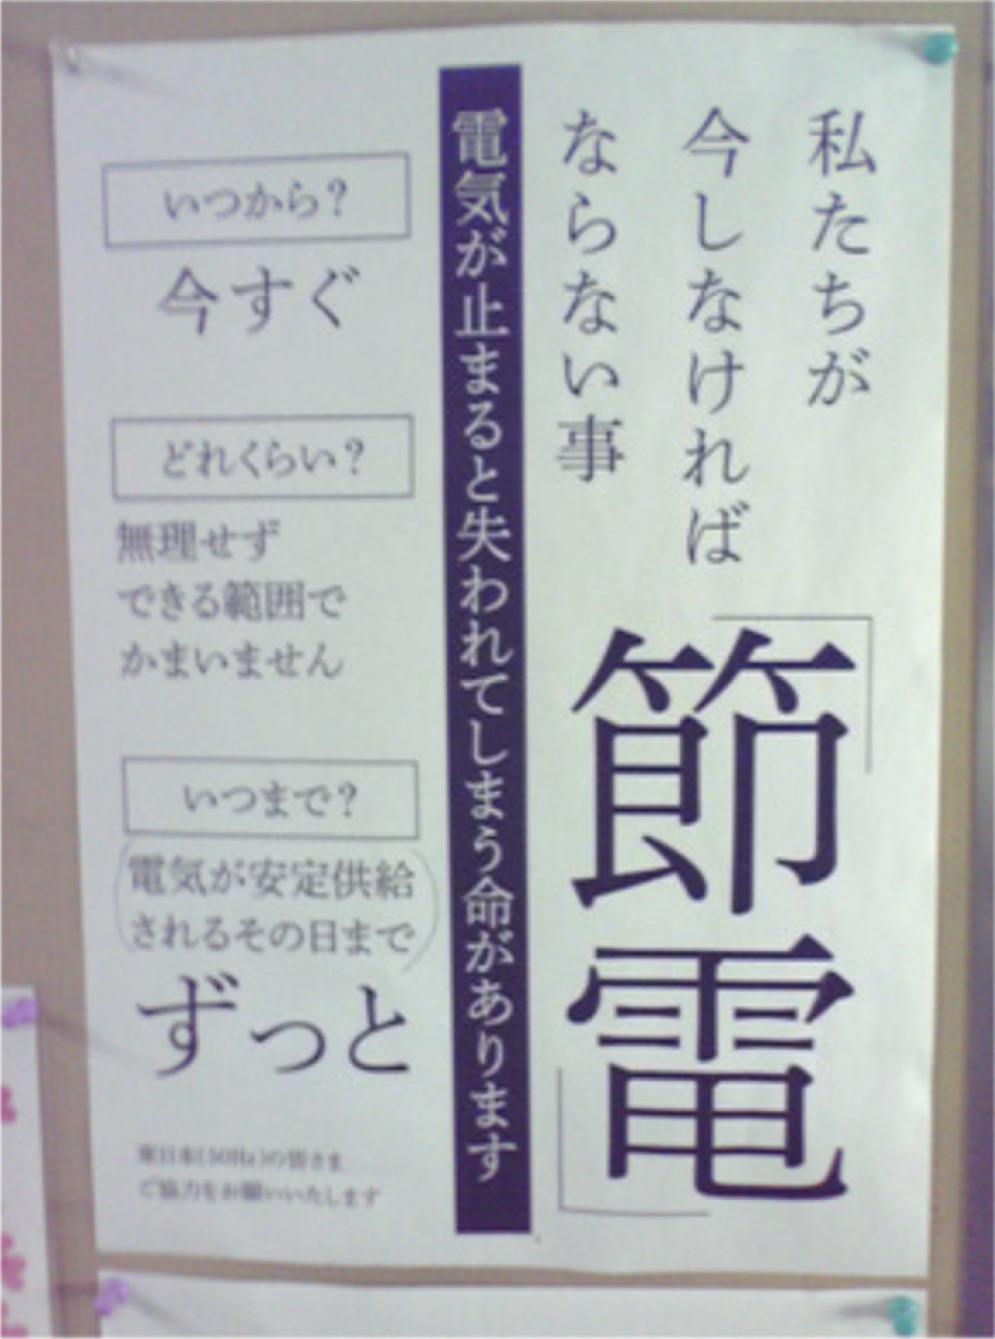 私たちが
今しなければ
ならない事
「節電」
電気が止まると失われてしまう命があります
いつから?
今すぐ
どれくらい?
無理せず
できる範囲で
かまいません
いつまで?
(電気が安定供給
されるその日まで)
ずっと
東日本(50Hz)の皆さま
ご協力をお願いいたします